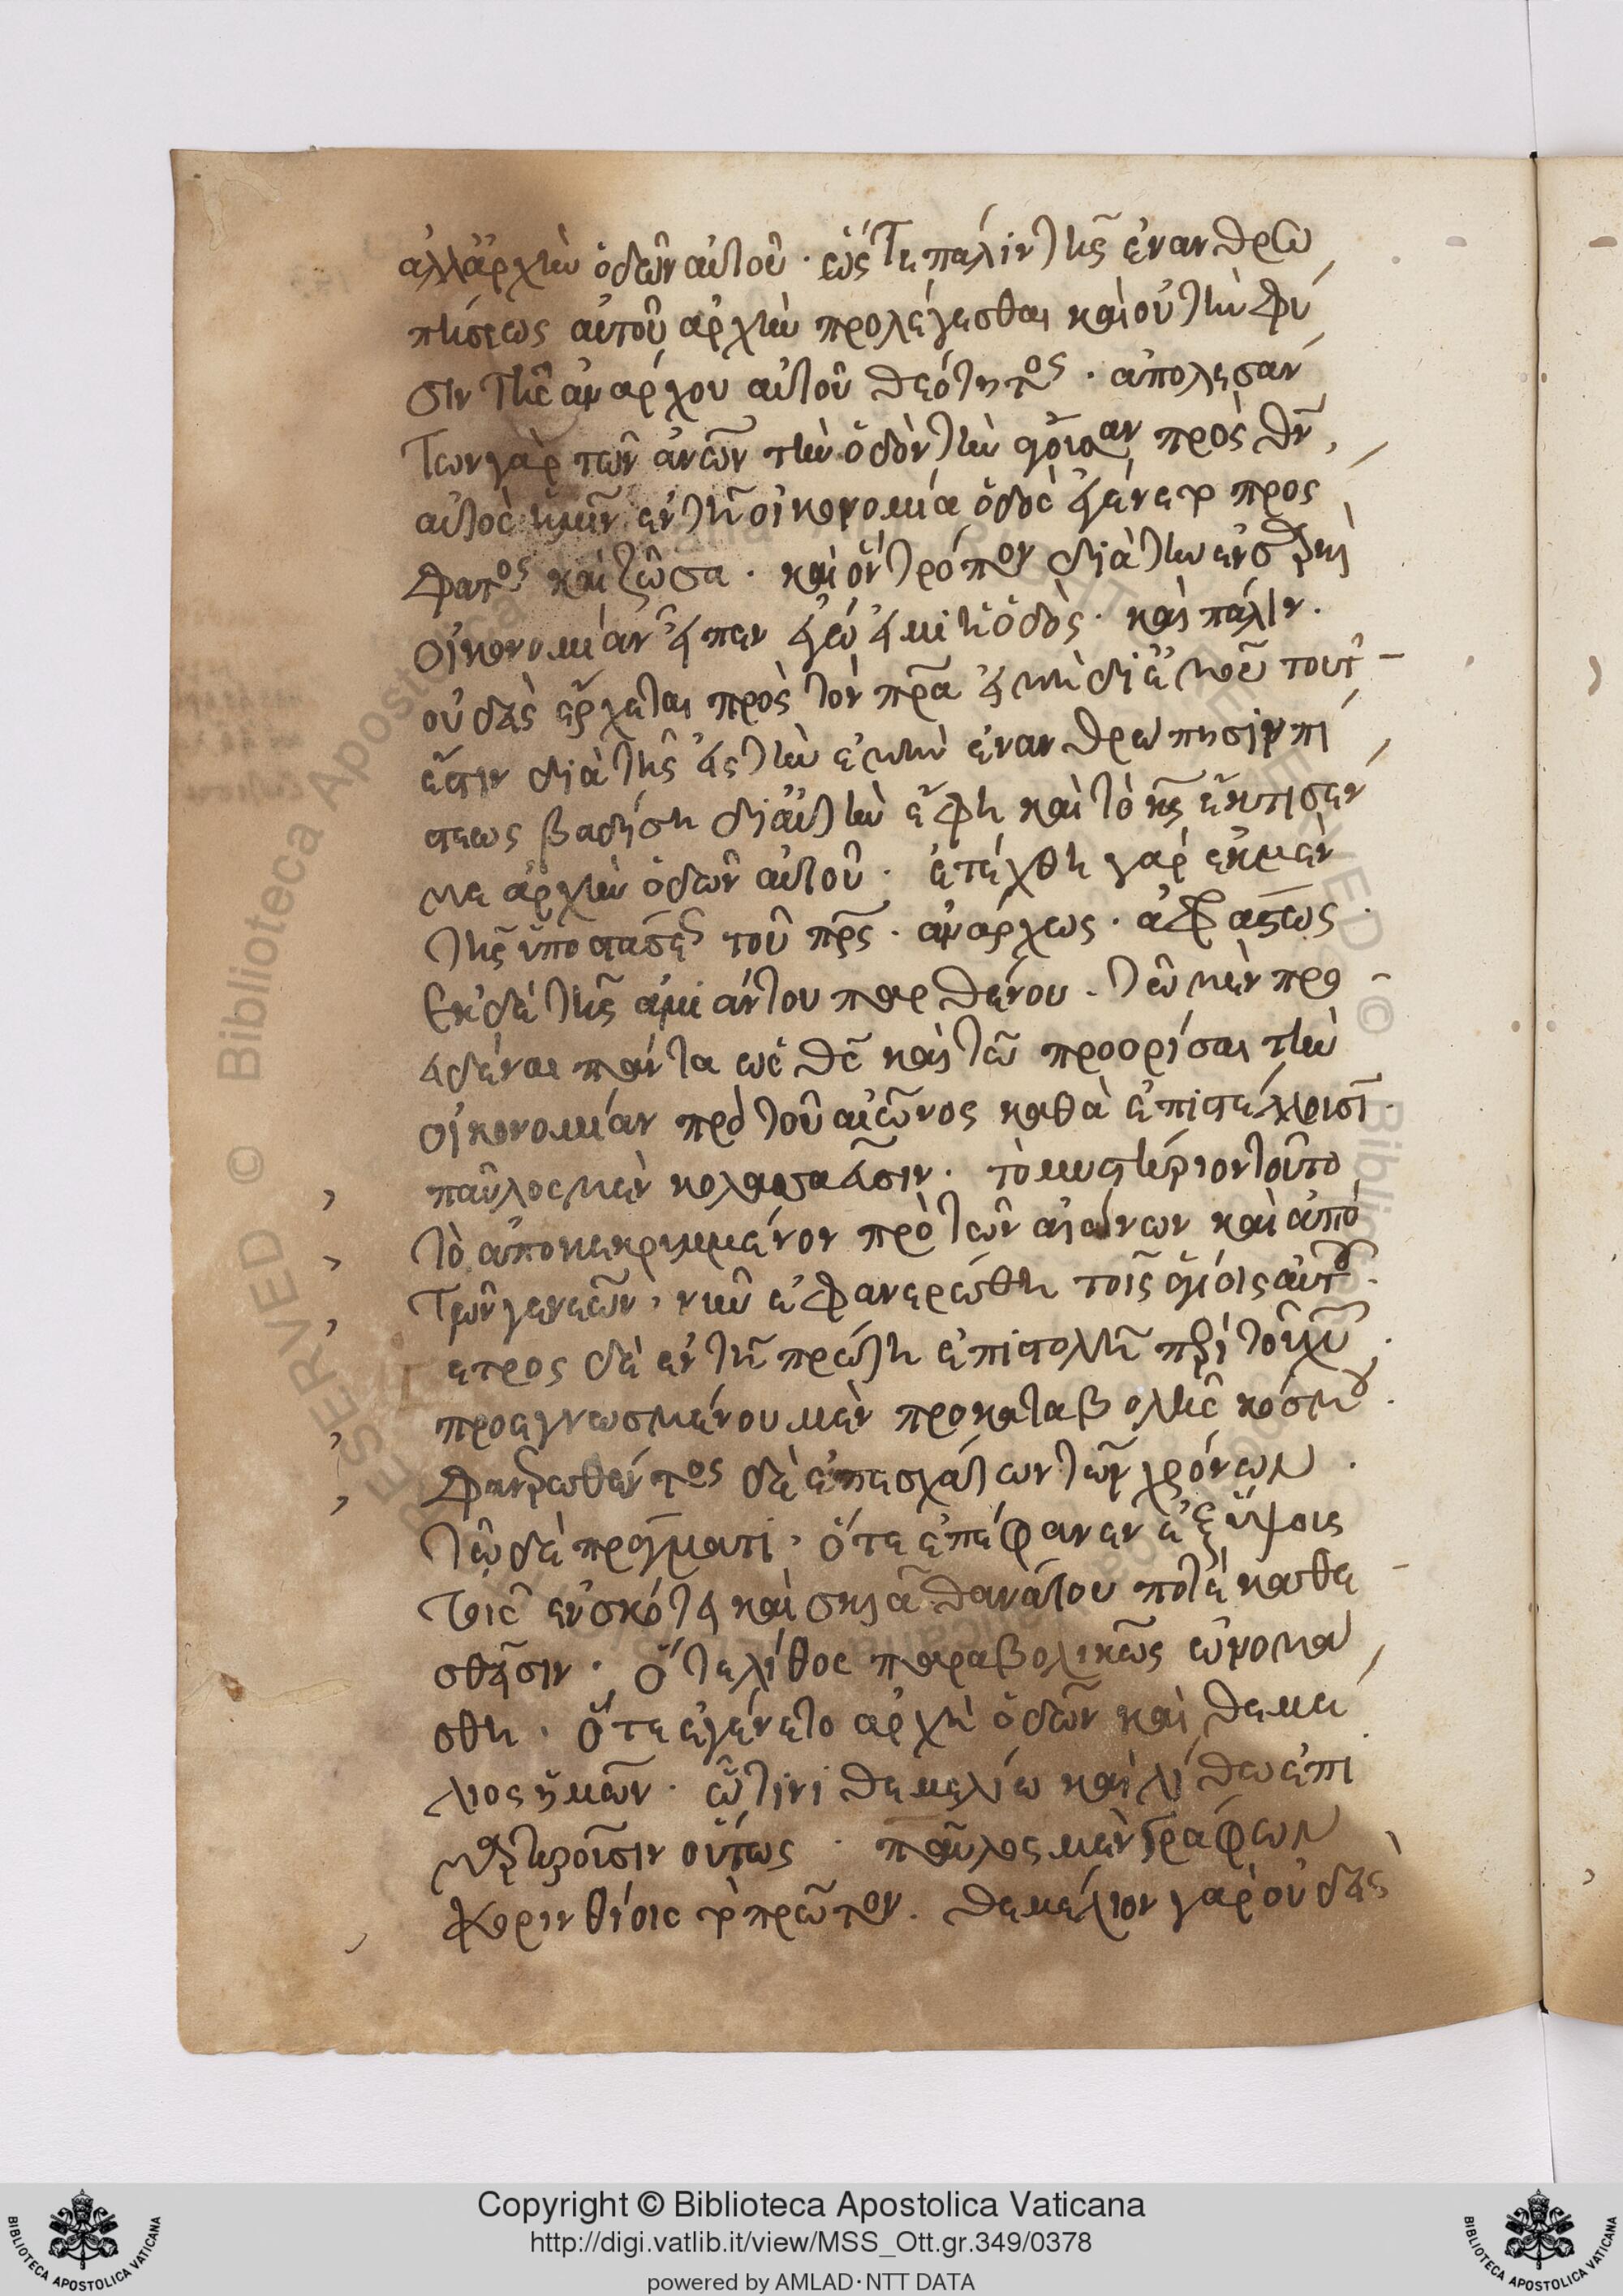 ἀλλ' ἀρχὴν ὁδῶν αὐτοῦ · ὥστε πάλιν τῆς ἐνανθρω
πήσεως αὐτοῦ ἀρχὴν προλέγεσθαι καὶ οὐ τὴν φύ
σιν τῆς ἀνάρχου αὐτοῦ θεότητος · ἀπολεσάν
των γὰρ τῶν ἀνῶν τὴν ὁδὸν τὴν πρὸς θν,
αὐτὸς ἡμῖν ἐν τῇ οἰκονομία ὁδὸς γέγονε προς
φατος καὶ ζῶσα · καὶ ὃν τρόπον διὰ τὴν ἔνσαρκον
οἰκονομίαν εἶπεν ἐγώ εἰμι ἡ ὁδὸς · καὶ πάλιν ·
οὐδεὶς ἔρχεται πρὸς τὸν πρα εἰ μὴ δι' ἐμοῦ τουτ
έστιν διὰ τῆς εἰς τὴν ἐμὴν ἐνανθρώπησιν πί
στεως βαδίση δι' αὐτὴν ἔφη καὶ τὸ κς ἔκτισέν
με ἀρχὴν ὁδῶν αὐτοῦ · ἐτέχθη γὰρ ἐκ μὲν
τῆς ὑποστάσεως τοῦ πρς · ἀνάρχως · ἀφράστως ·
ἐκ δὲ τῆς ἀμιάντου παρθένου · τῶ μὲν προ
ειδέναι πάντα ὡς θς καὶ τῶ προορίσαι τὴν
οἰκονομίαν πρὸ τοῦ αἰῶνος καθὰ ἐπιστέλλουσι ·
παῦλος μὲν κολασσαεῦσιν · τὸ μυστήριον τοῦτο
τὸ ἀποκεκρυμμένον πρὸ τῶν αἰώνων καὶ ἀπὸ
τῶν γενεῶν, νῦν ἐφανερώθη τοῖς ἁγίοις αὐτοῦ ·
ετρος δὲ ἐν τῆ πρώτη ἐπιστολῆ περὶ τοῦ χυ ·
προεγνωσμένου μὲν προ καταβολῆς κόσμου ·
φανερωθέντος δὲ ἐπ' ἐσχάτων τῶν χρόνων ·
τῶ δὲ πράγματι, ὅτε ἐπέφανεν ἐξ ὕψους
τοῖς ἐν σκότει καὶ σκιᾶ θανάτου ποτὲ καθε
σθεῖσιν · ὅτε λίθος παραβολικῶς ὠνομά
σθη · ὅτε ἐγένετο ἀρχὴ ὁδῶν καὶ θεμέ
λιος ἡμῶν · ᾧτινι θεμελίω καὶ λίθω ἐπι
μαρτυροῦσιν οὕτως · παῦλος μὲν γράφων
κορινθίοις πρῶτον · θεμέλιον γὰρ οὐδεὶς
Copyright © Biblioteca Apostolica Vaticana
http://digi.vatlib.it/view/MSS_Ott.gr.349/0378
powered by AMLAD·NTT DATA
BIBLIOTECA APOSTOLICA VATICANA
BIBLIOTECA APOSTOLICA VATICANA